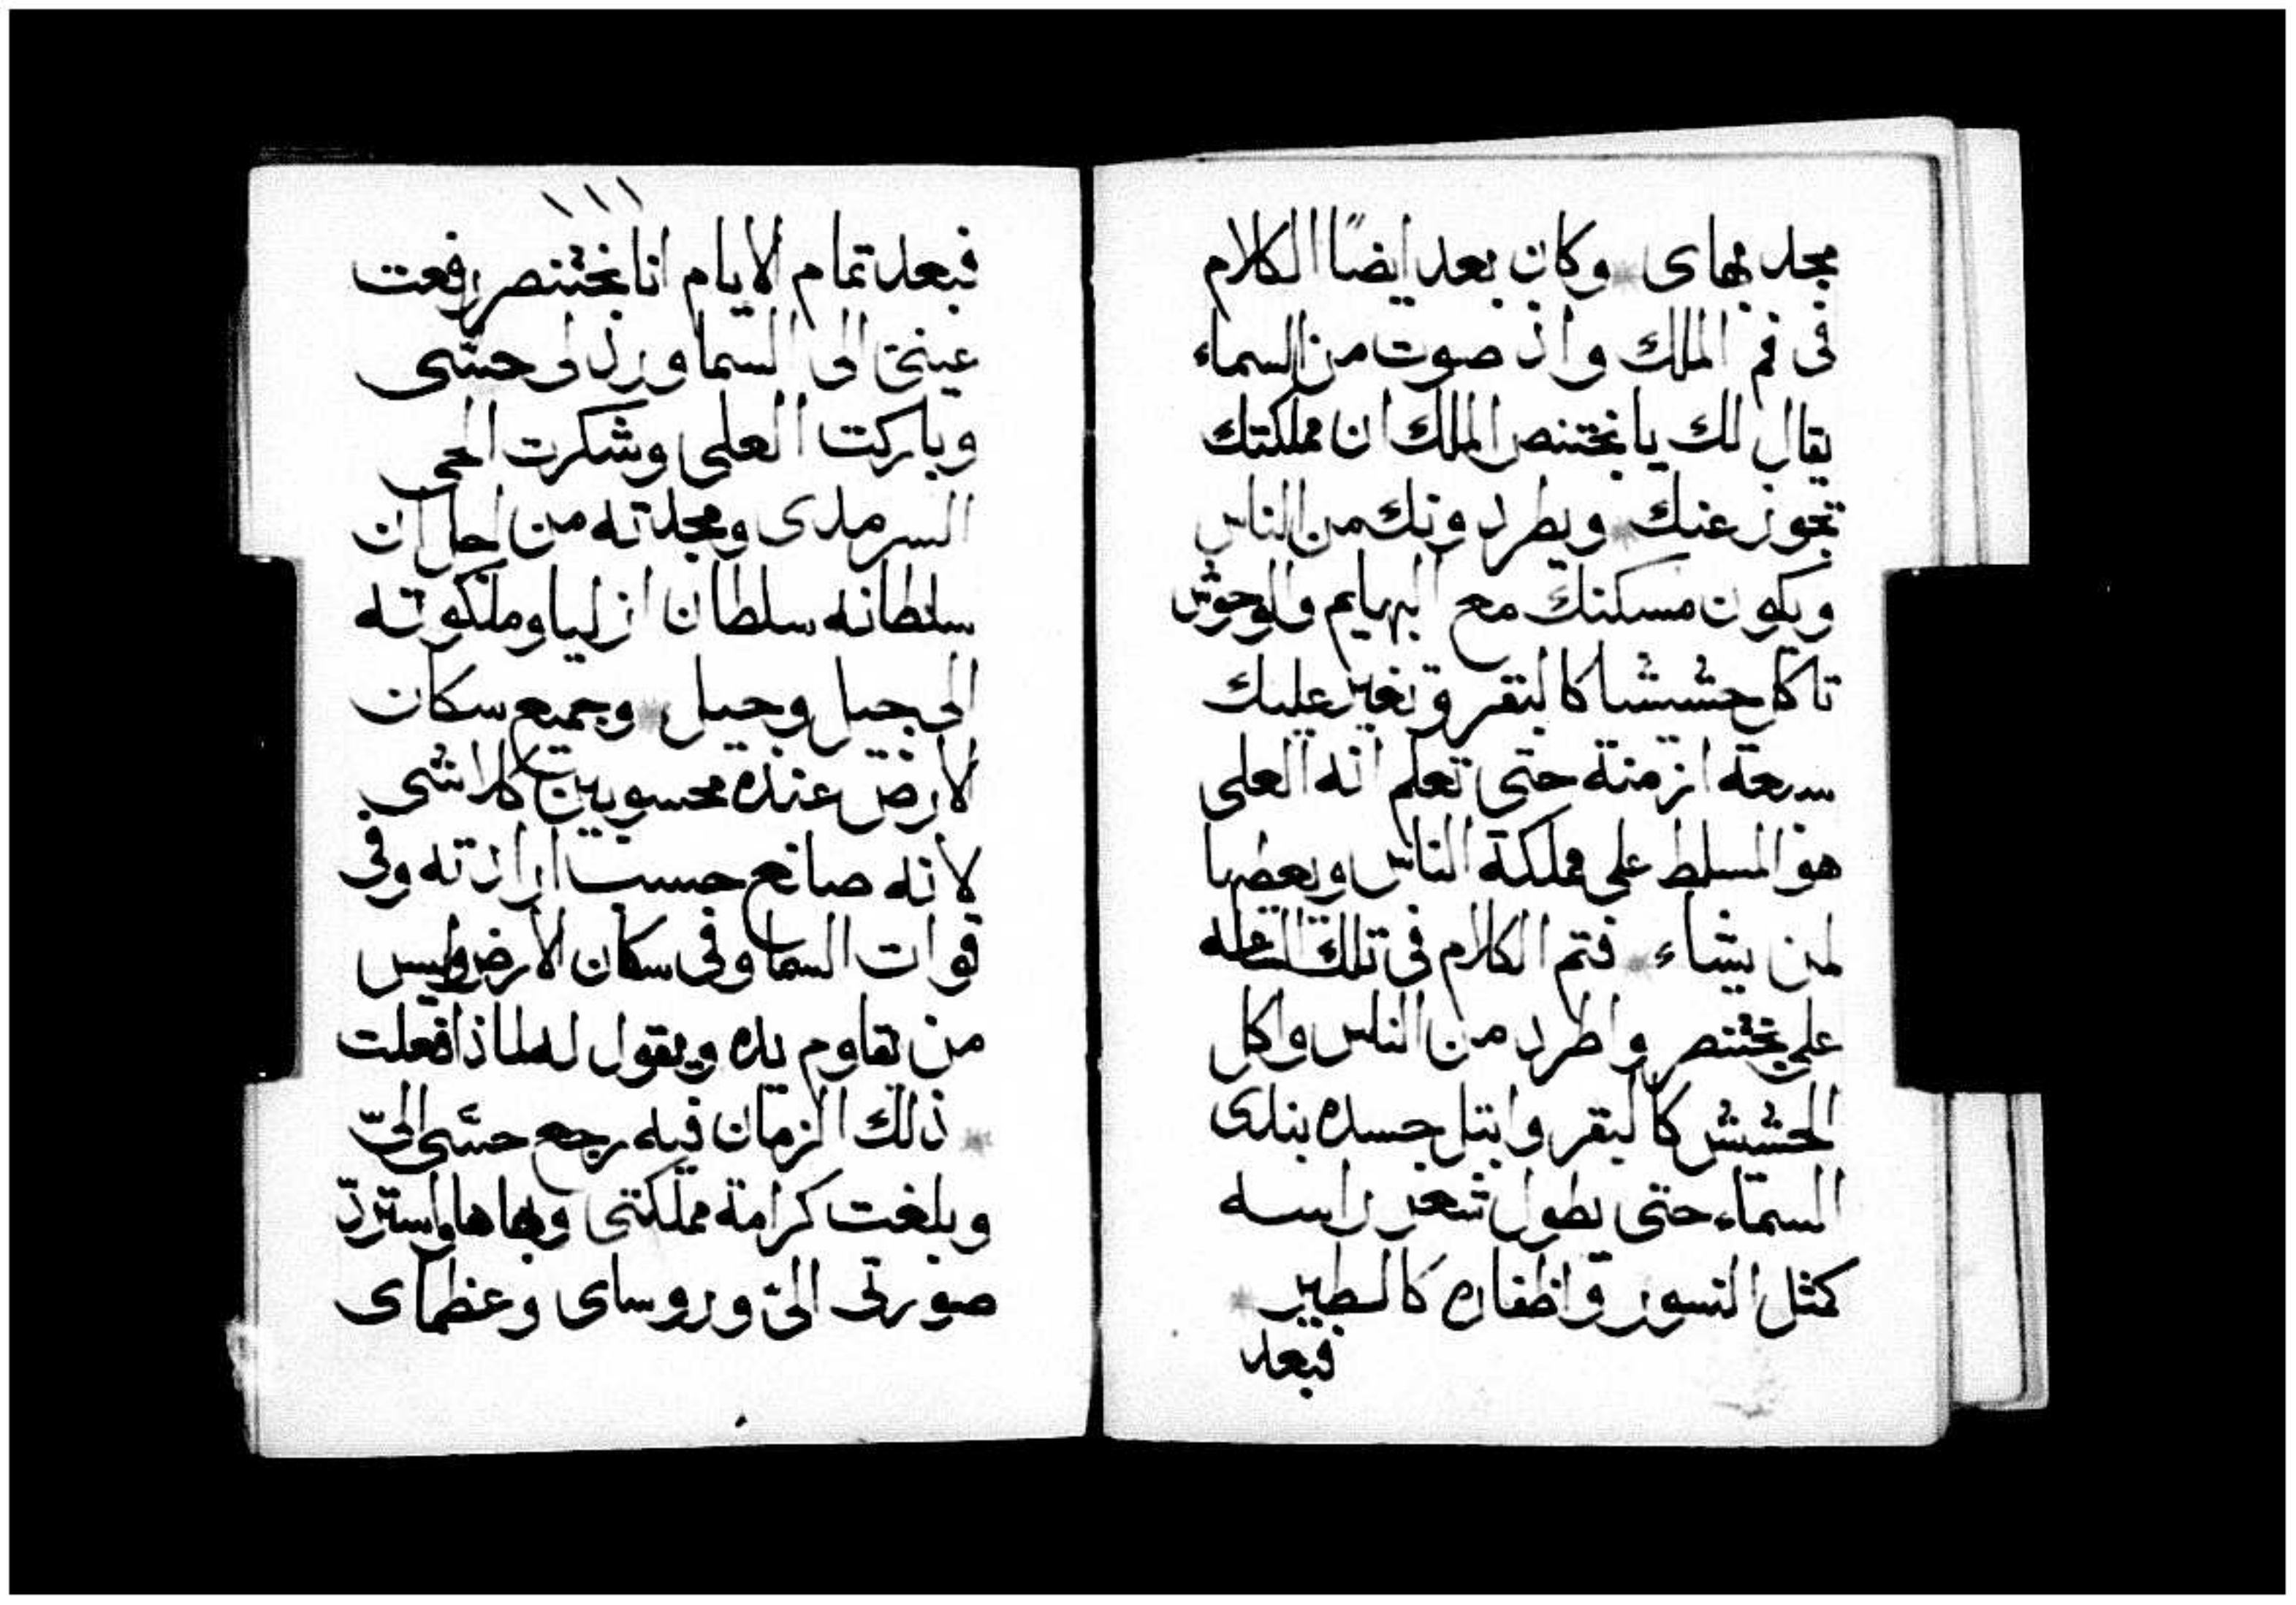 مجد بهاى وكان بعد ايضًا الكلام
فى فم الملك واذ صوت من السماء
يقال لك يا بختنصر الملك ان مملكتك
تجوز عنك ويطردونك من الناس
ويكون مسكنك مع البهايم والوحوش
تاكل حشيشا كالبقر وتغير عليك
سبعة ازمنة حتى تعلم انه العلى
هو المسلط على مملكة الناس ويعطيها
لمن يشاء فتم الكلام فى تلك
على بختنصر واطرد من الناس واكل
الحشيش كالبقر وابتل جسده بندى
السماء حتى يطول شعر راسه
كمثل النسور واظفاره كالطير
فبعد
فبعد تمام الايام انا بختنصر رفعت
عينى الى السما ورد لى حسّى
وباركت العلى وشكرت الحى
السرمدى ومجدته من اجل ان
سلطانه سلطان ازليا وملكوته
الى جيل وجيل وجميع سكان
الارض عنده محسوبين كلا شى
لانه صانع حسب ارادته وفى
قوات السما وفى سكان الارض وليس
من يقاوم يده ويقول له لماذا فعلت
ذلك الزمان فيه رجع حسّى الىّ
وبلغت كرامة مملكتى وبهاها واستردّ
صورتى الىّ وروساى وعظماى